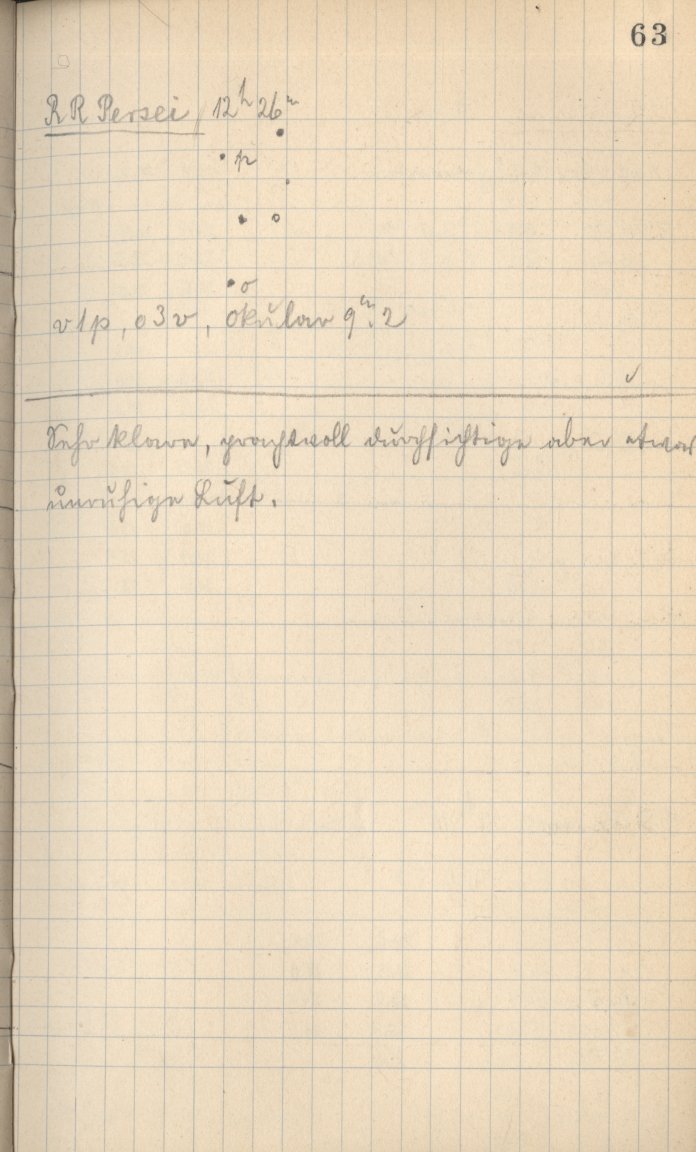 63
RR Persei 12h 26m
p
o
v1p, o3v, Okular 9m.2
Sehr klare, prachtvoll durchsichtige aber etwas
unruhige Luft.